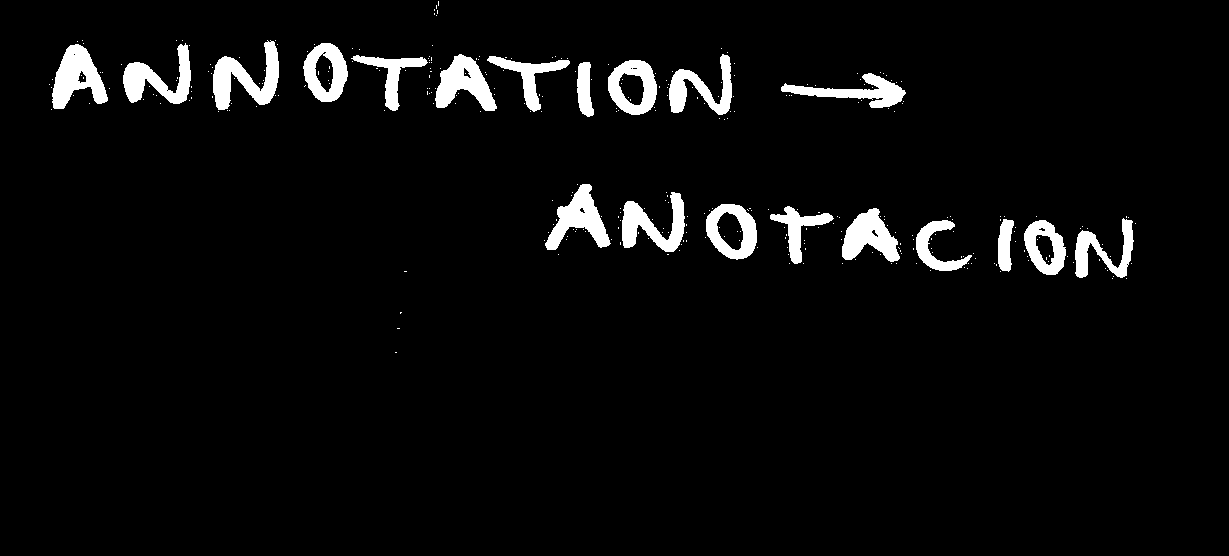 ANNOTATION →
ANOTACION